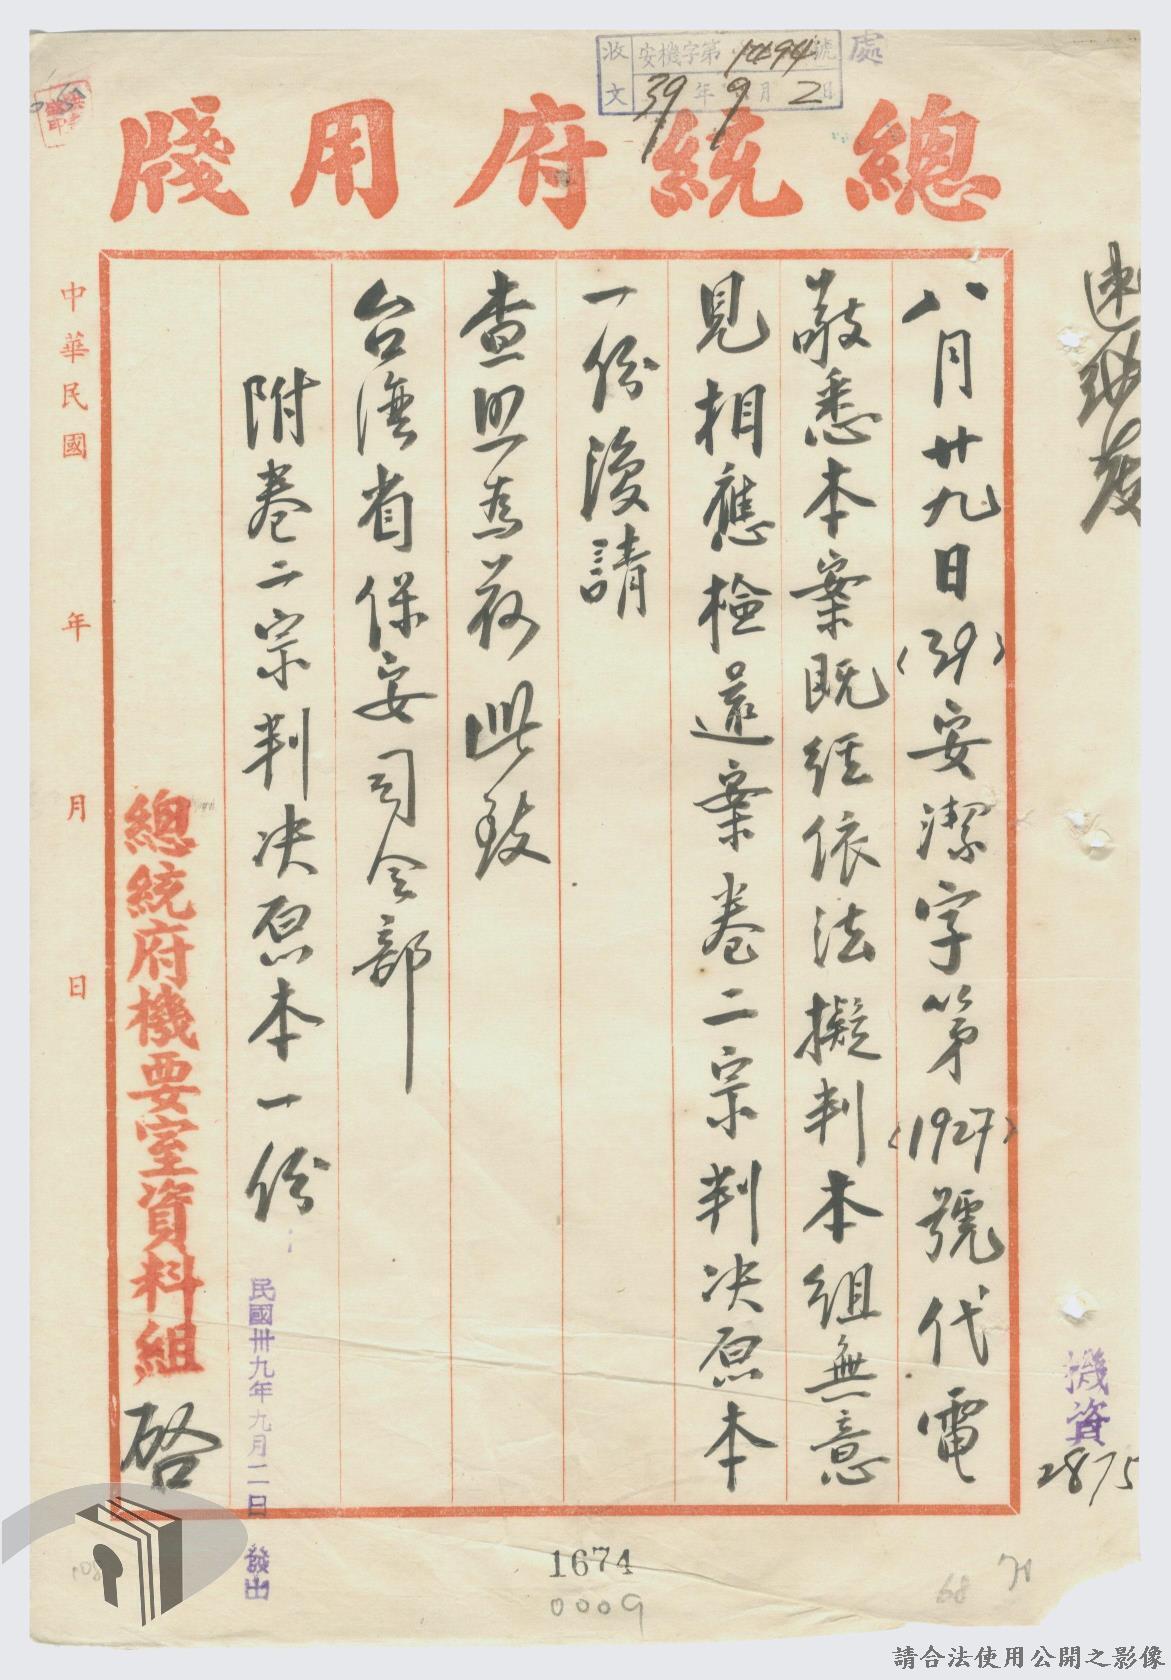 總統府用牋
收文 安機字第號
39年9月2日
處
八月廿九日(39)安潔字第(1927)號代電
敬悉本案既經依法擬判本組無意
見相應檢還案卷二宗判决原本
一份復請
查照為荷此致
台灣省保安司令部
附卷二宗判决原本一份
總統府機要室資料組 啓
民國卅九年九月二日 發出
中華民國 年 月 日
機資
2875
1674
0009
68
請合法使用公開之影像